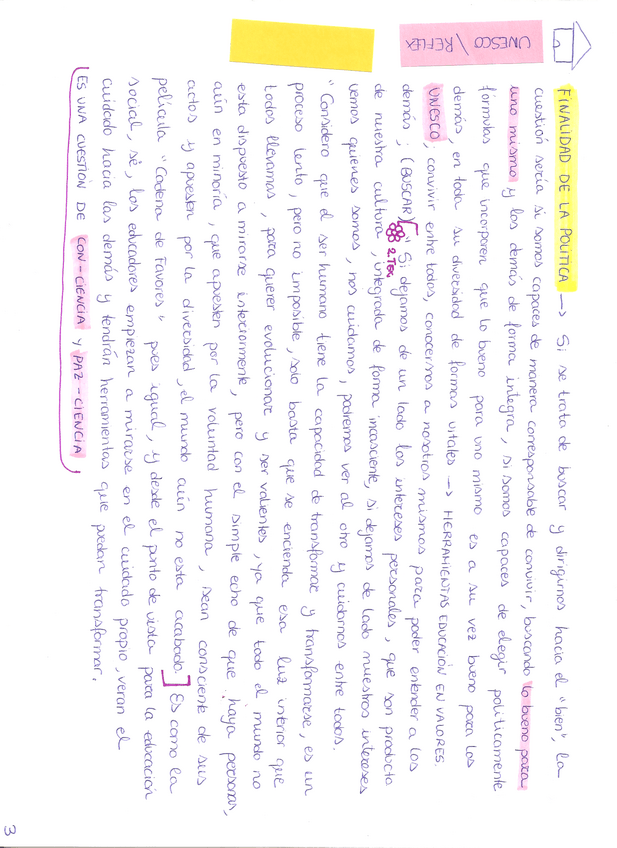 UNESCO / REFLEX
FINALIDAD DE LA POLITICA → Si se trata de buscar y dirigirnos hacia el "bien", la
cuestión sería si somos capaces de manera corresponsable de convivir, buscando lo bueno para
uno mismo y los demás de forma integra, si somos capaces de elegir politicamente
fórmulas que incorporen que lo bueno para uno mismo es a su vez bueno para los
demás, en toda su diversidad de formas vitales → HERRAMIENTAS EDUCACIÓN EN VALORES.
UNESCO; convivir entre todos, conocernos a nosotros mismos para poder entender a los
demás; (BUSCAR) [ "Si dejamos de un lado los intereses personales, que son producto
2.Tex
de nuestra cultura, integrada de forma incosciente, si dejamos de lado nuestros intereses
vemos quienes somos, nos cuidamos, podremos ver al otro y cuidarnos entre todos.
"Considero que el ser humano tiene la capacidad de transformar y transformarse, es un
proceso lento, pero no imposible, solo basta que se encienda esa luz interior que
todos llevamos, para querer evolucionar y ser valientes, ya que todo el mundo no
esta dispuesto a mirarse interiormente, pero con el simple echo de que haya personas,
aún en minoría, que apuesten por la voluntad humana, sean consciente de sus
actos y apuesten por la diversidad, el mundo aún no esta acabado. ] Es como la
película "Cadena de Favores" pues igual, y desde el punto de vista para la educación
social, si, los educadores empiezan a mirarse en el cuidado propio, veran el
cuidado hacia los demás y tendrán herramientas que puedan transformar.
ES UNA CUESTIÓN DE CON-CIENCIA y PAZ-CIENCIA
3